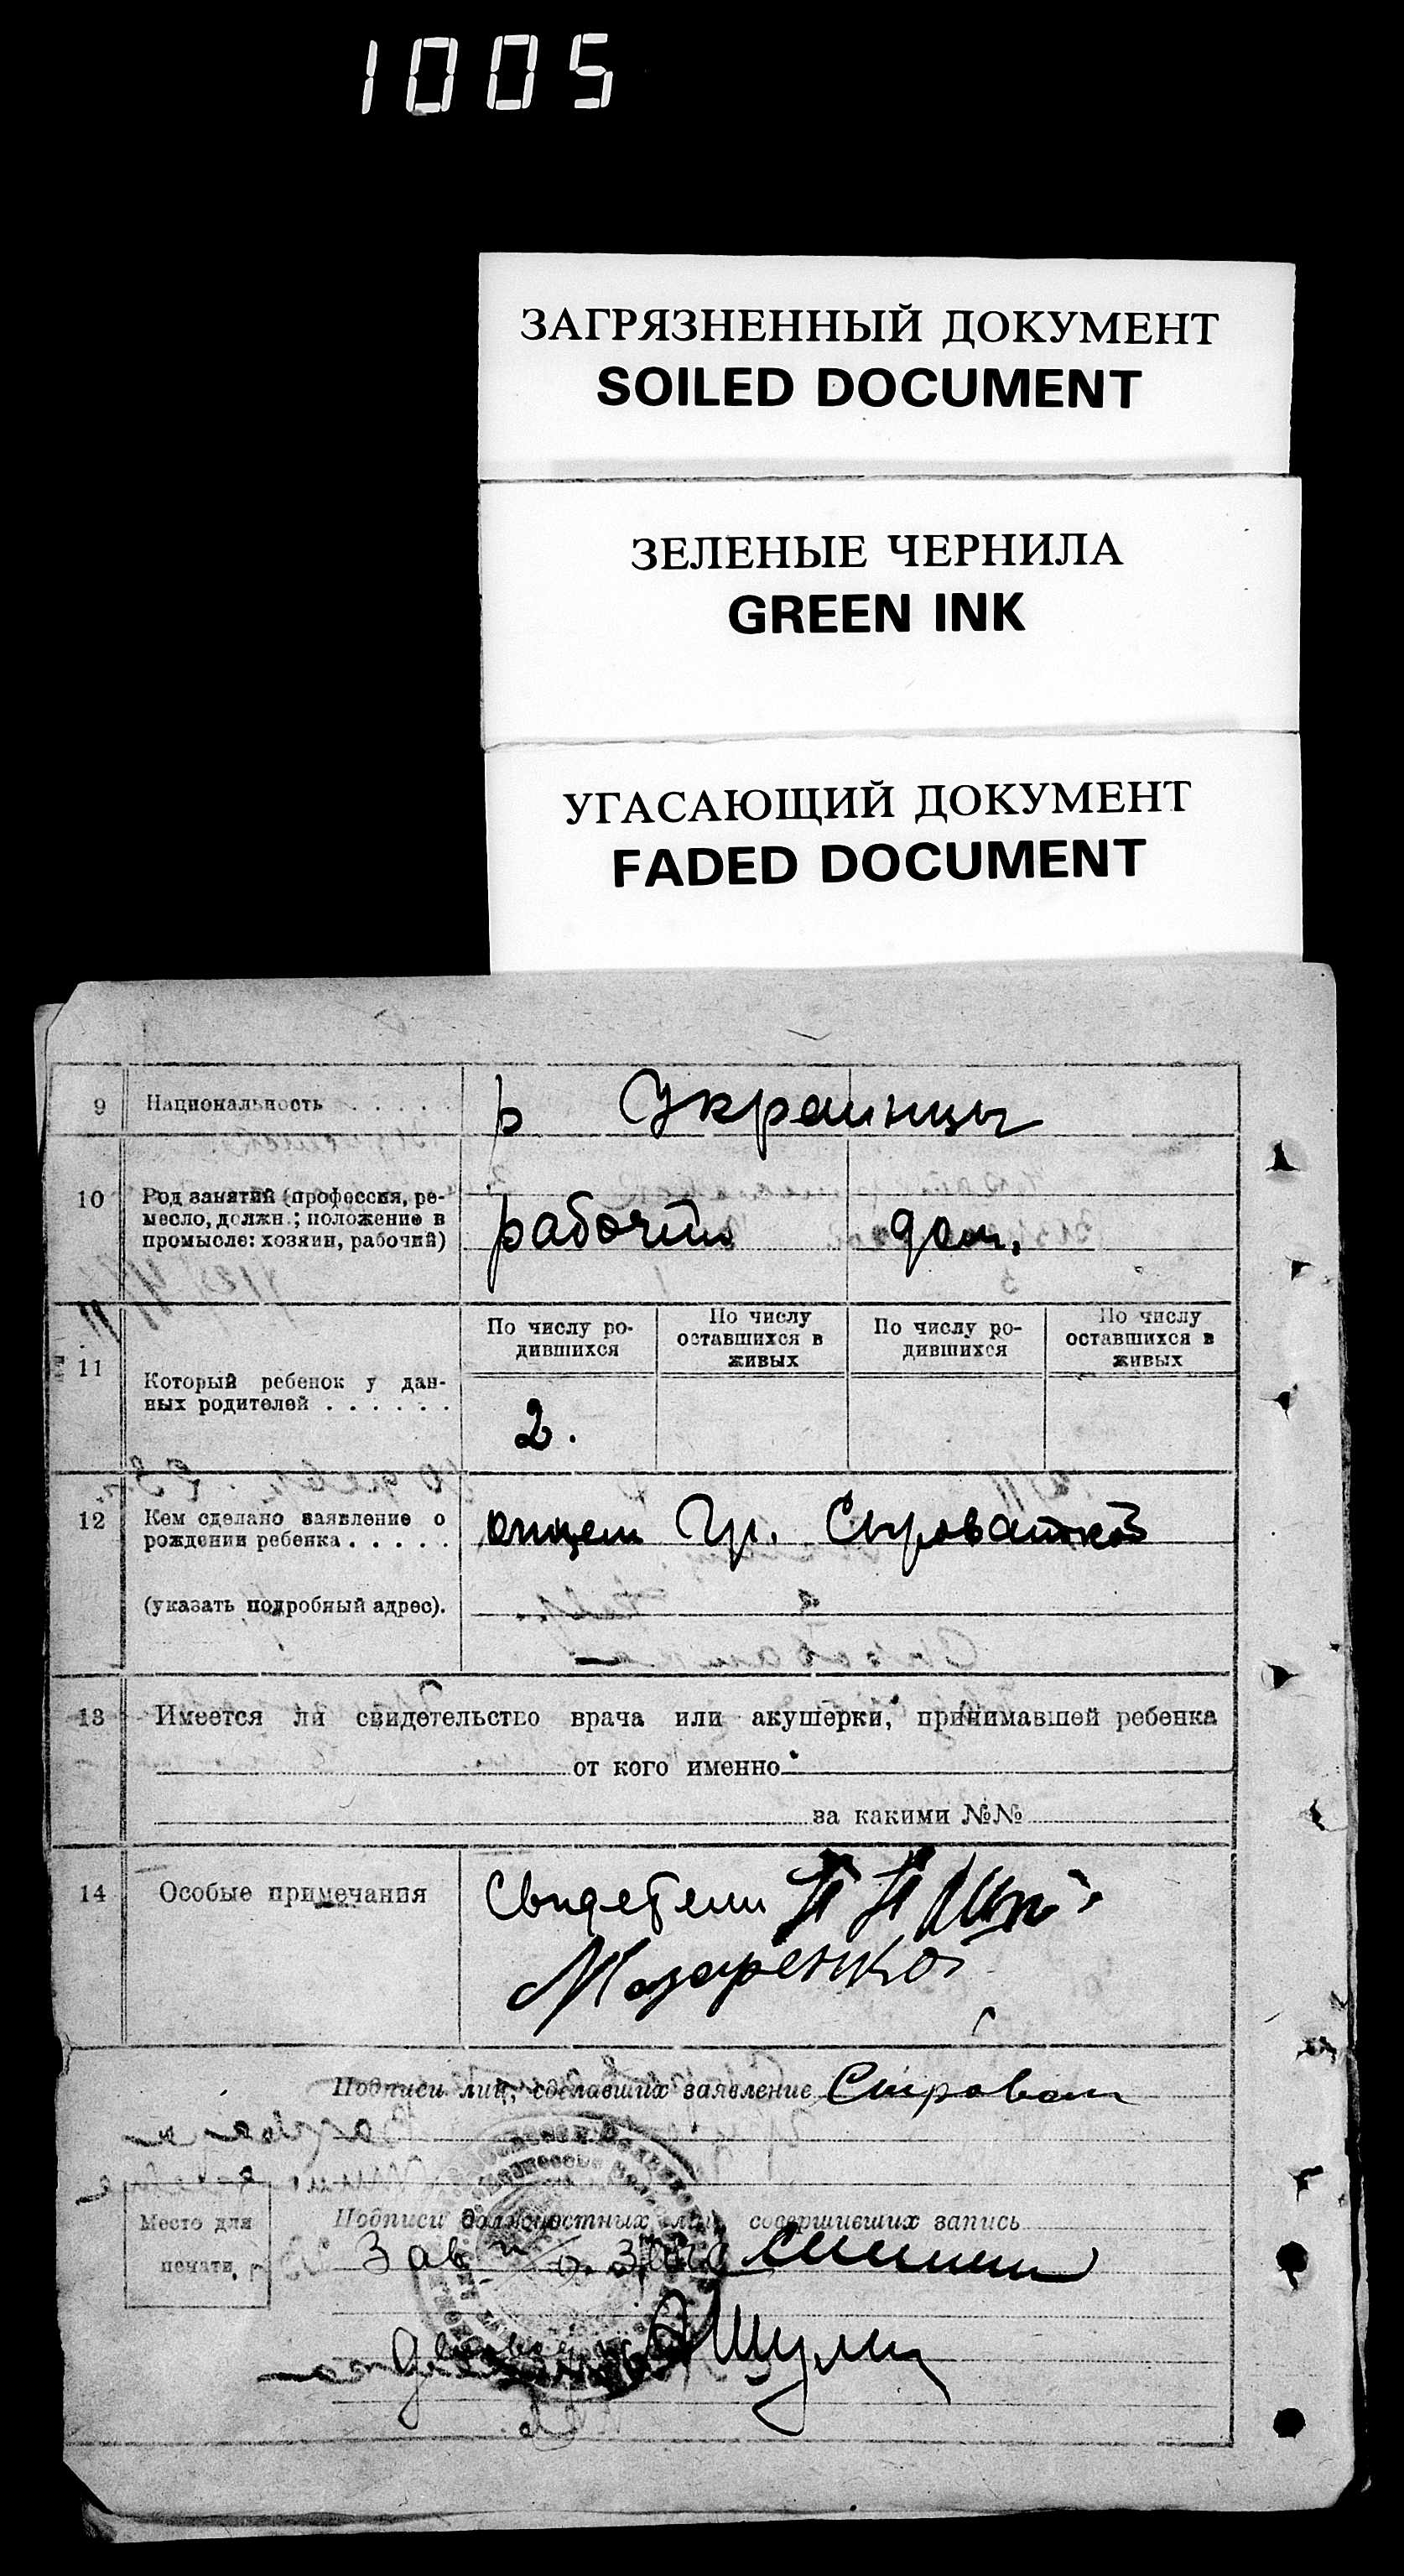 1005
ЗАГРЯЗНЕННЫЙ ДОКУМЕНТ
SOILED DOCUMENT
ЗЕЛЕНЫЕ ЧЕРНИЛА
GREEN INK
УГАСАЮЩИЙ ДОКУМЕНТ
FADED DOCUMENT
9 Национальность . . . . . р Украинцы
10 Род занятий (профессия, ре-
месло, должн.; положение в
промысле: хозяин, рабочий)
рабочий дом.
11 Который ребенок у дан-
ных родителей . . . . . .
По числу ро-
дившихся
По числу
оставшихся в
живых
По числу ро-
дившихся
По числу
оставшихся в
живых
2.
12 Кем сделано заявление о
рождении ребенка . . . . .
(указать подробный адрес).
отцем Гр. Сыроваткой
13 Имеется ли свидетельство врача или акушерки, принимавшей ребенка
от кого именно
за какими №№
14 Особые примечания
Свидетели
Назаренко
Подписи лиц, сделавших заявление Сыроват
Место для
печати.
Подписи должностных лиц, совершивших запись
Зав